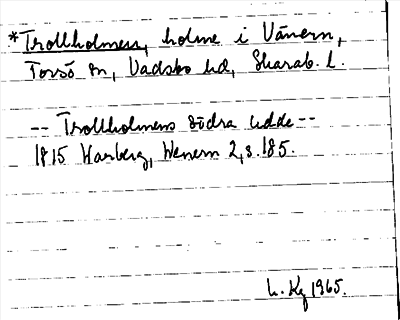 *Trollholmen, holme i Vänern,
Torsö sn, Vadsbo hd, Skarab. l.
-- Trollholmens södra udde --
1815 Warberg, Wenern 2, s. 185.
L. Kg 1965.